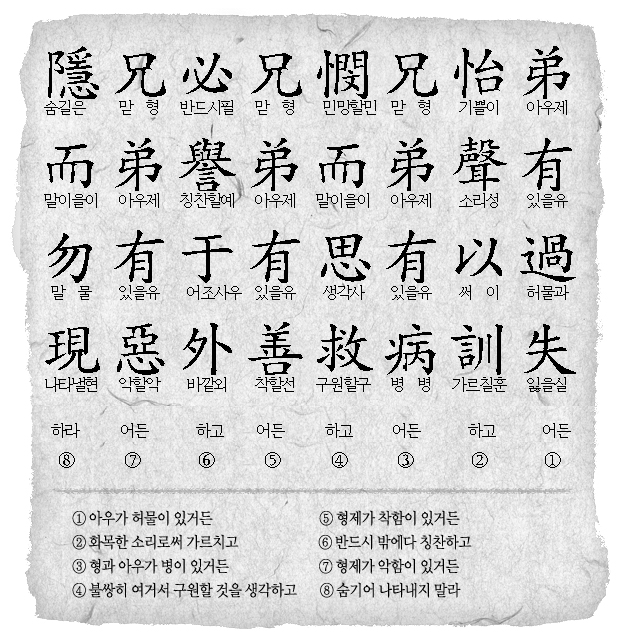 弟 아우제 有 있을유 過 허물과 失 잃을실 어든 ①
怡 기쁠이 聲 소리성 以 써 이 訓 가르칠훈 하고 ②
兄 맏 형 弟 아우제 有 있을유 病 병 병 어든 ③
憫 민망할민 而 말이을이 思 생각사 救 구원할구 하고 ④
兄 맏 형 弟 아우제 有 있을유 善 착할선 어든 ⑤
必 반드시필 譽 칭찬할예 于 어조사우 外 바깥외 하고 ⑥
兄 맏 형 弟 아우제 有 있을유 惡 악할악 어든 ⑦
隱 숨길은 而 말이을이 勿 말 물 現 나타낼현 하라 ⑧
① 아우가 허물이 있거든
② 화목한 소리로써 가르치고
③ 형과 아우가 병이 있거든
④ 불쌍히 여겨서 구원할 것을 생각하고
⑤ 형제가 착함이 있거든
⑥ 반드시 밖에다 칭찬하고
⑦ 형제가 악함이 있거든
⑧ 숨기어 나타내지 말라